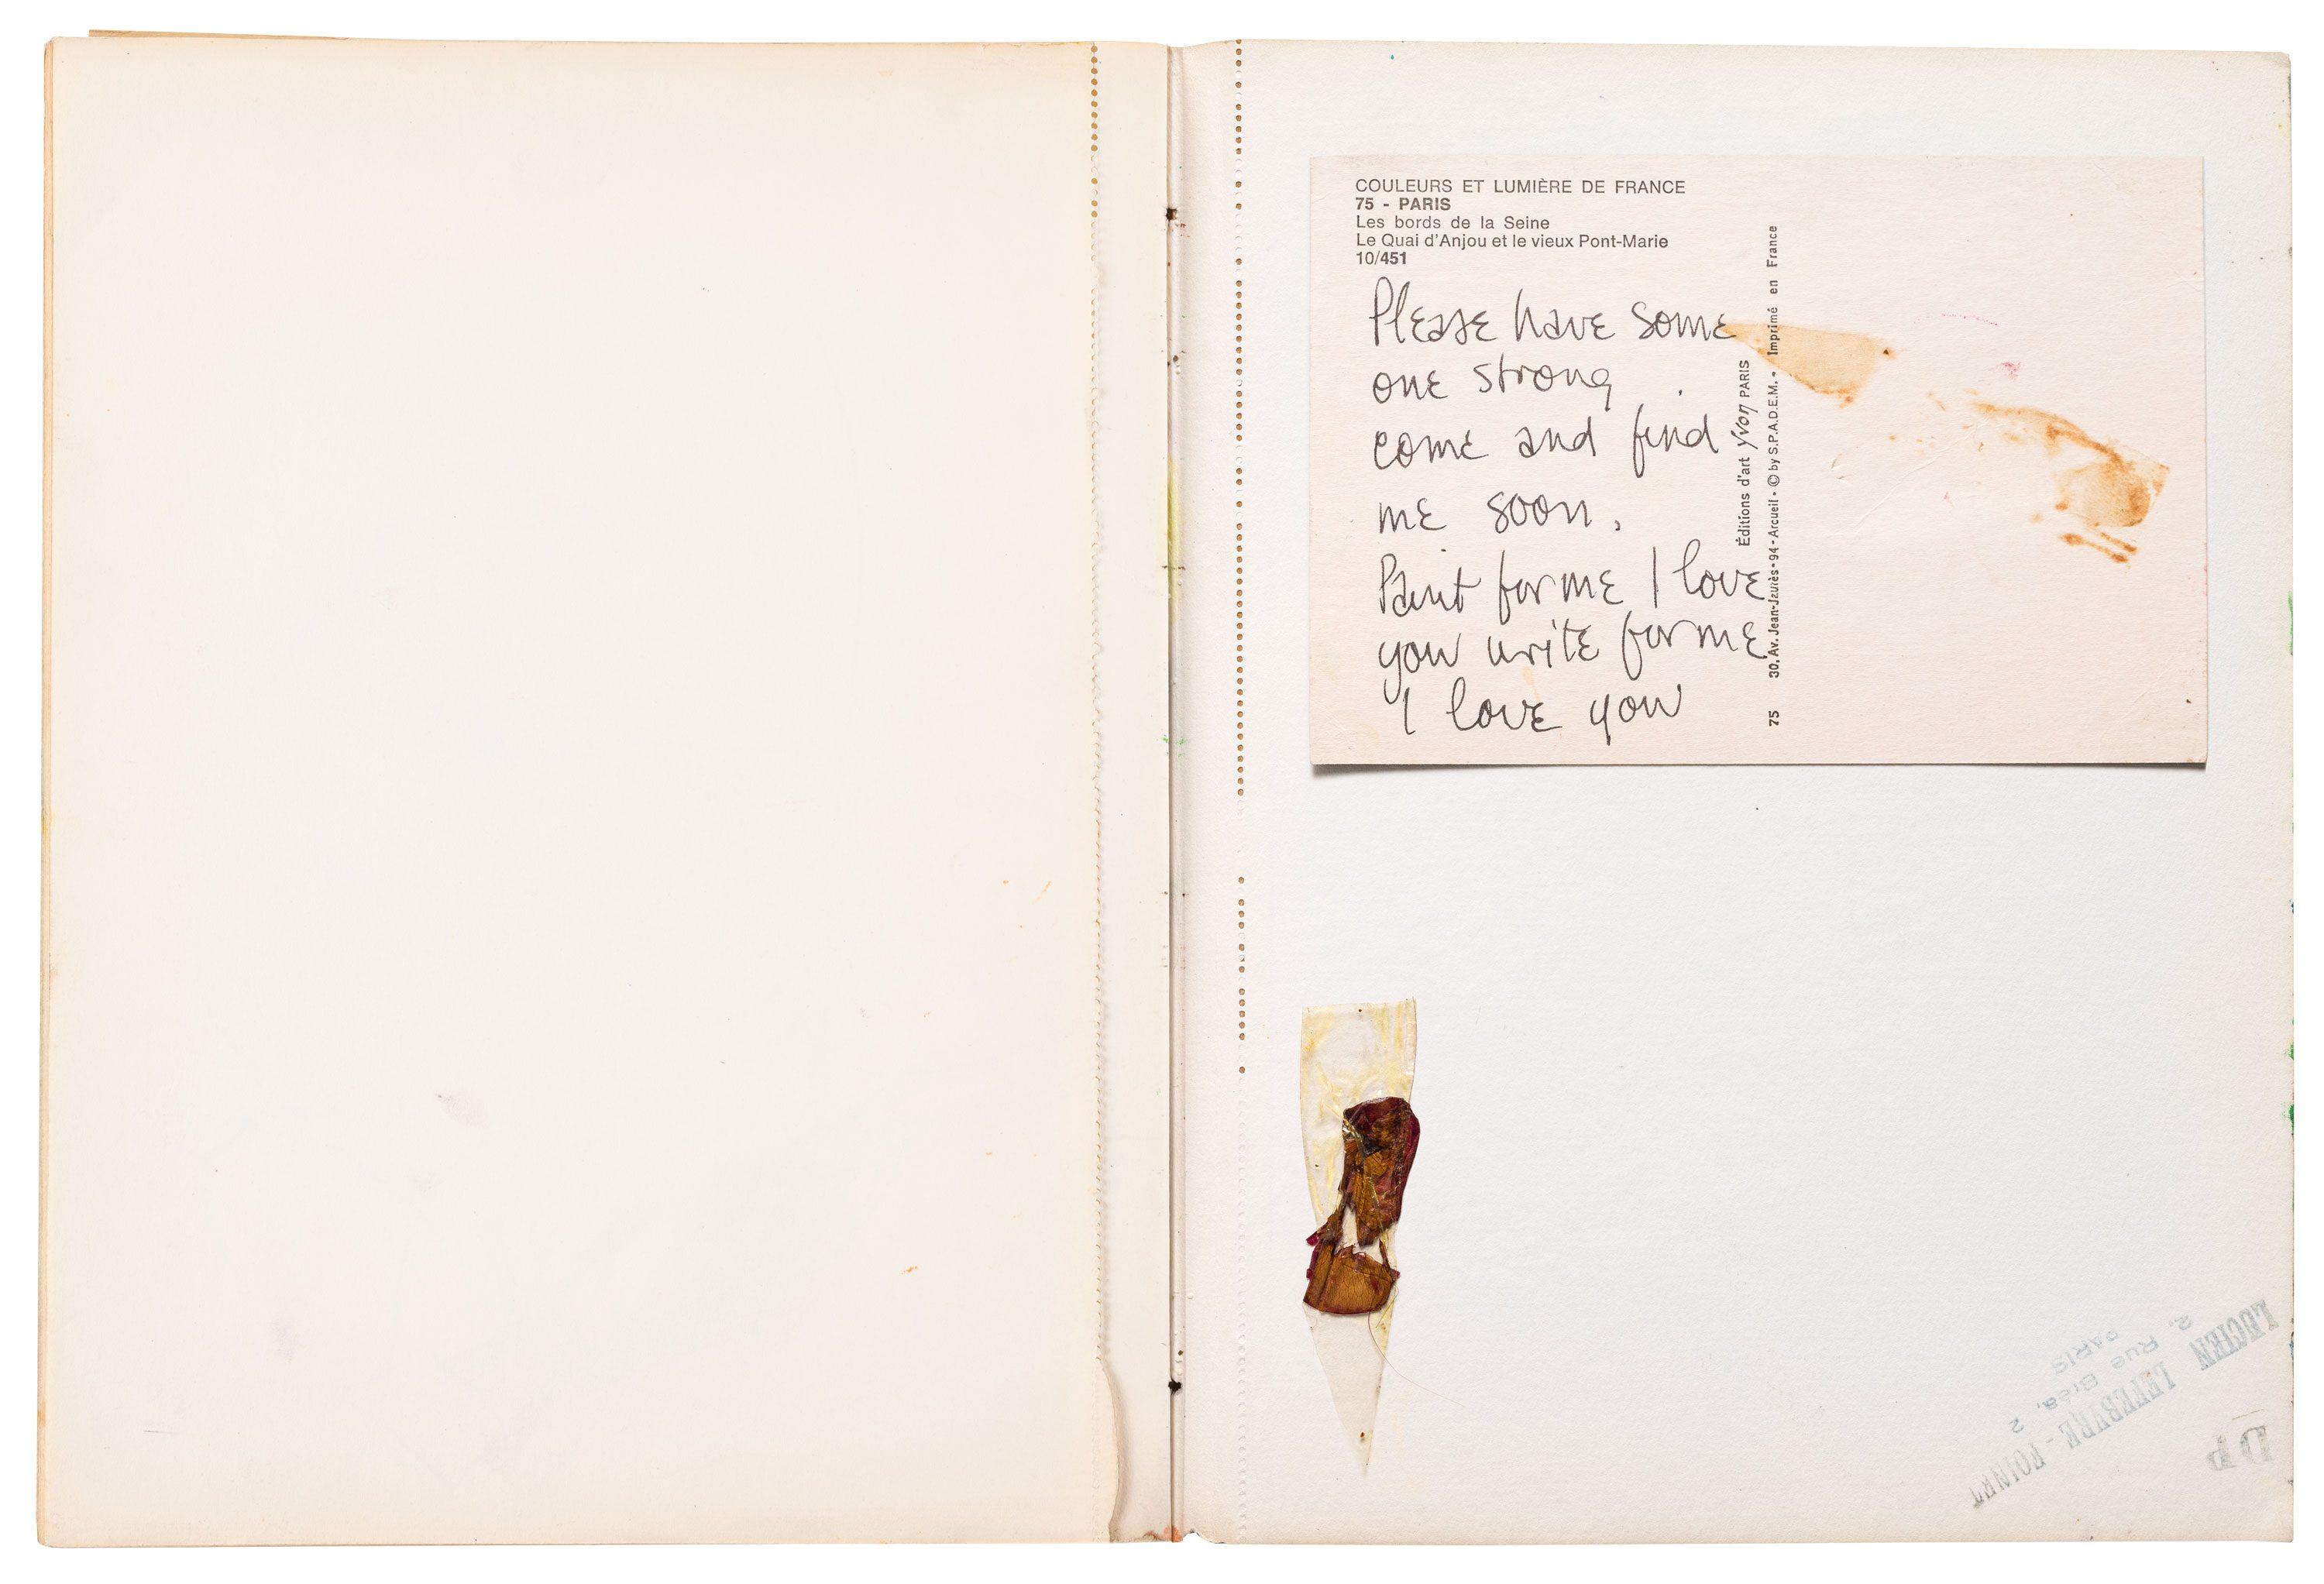 COULEURS ET LUMIÈRE DE FRANCE
75 - PARIS
Les bords de la Seine
Le Quai d'Anjou et le vieux Pont-Marie
10/451
Please have some
one strong
come and find
me soon.
Paint for me I love
you write for me
I love you
Éditions d'art yvon PARIS
75 30, Av. Jean-Jaurès - 94 - Arcueil • © by S.P.A.D.E.M. • Imprimé en France
LUCIEN LEFEBVRE - FOINET
2, Rue Bréa, 2
PARIS
DP